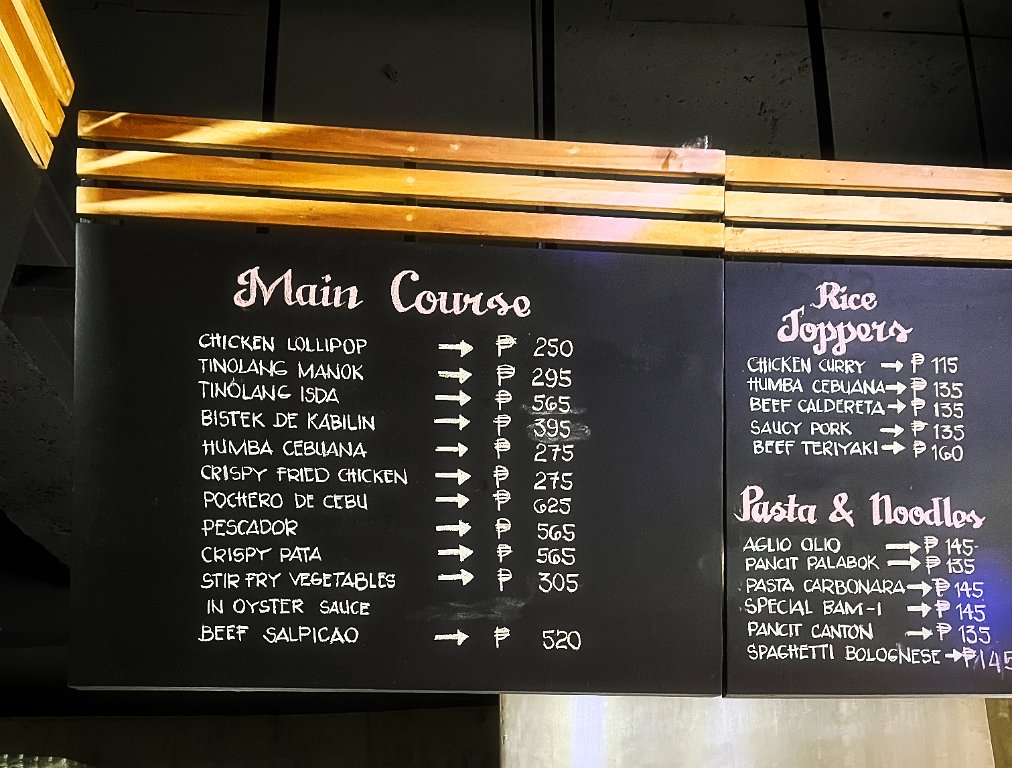 Main Course
CHICKEN LOLLIPOP → ₱ 250
TINOLANG MANOK → ₱ 295
TINOLANG ISDA → ₱ 565
BISTEK DE KABILIN → ₱ 395
HUMBA CEBUANA → ₱ 275
CRISPY FRIED CHICKEN → ₱ 275
POCHERO DE CEBU → ₱ 625
PESCADOR → ₱ 565
CRISPY PATA → ₱ 565
STIR FRY VEGETABLES → ₱ 305
IN OYSTER SAUCE
BEEF SALPICAO → ₱ 520
Rice
Toppers
CHICKEN CURRY → ₱ 115
HUMBA CEBUANA → ₱ 135
BEEF CALDERETA → ₱ 135
SAUCY PORK → ₱ 135
BEEF TERIYAKI → ₱ 160
Pasta & Noodles
AGLIO OLIO → ₱ 145
PANCIT PALABOK → ₱ 135
PASTA CARBONARA → ₱ 145
SPECIAL BAM-I → ₱ 145
PANCIT CANTON → ₱ 135
SPAGHETTI BOLOGNESE → ₱ 145